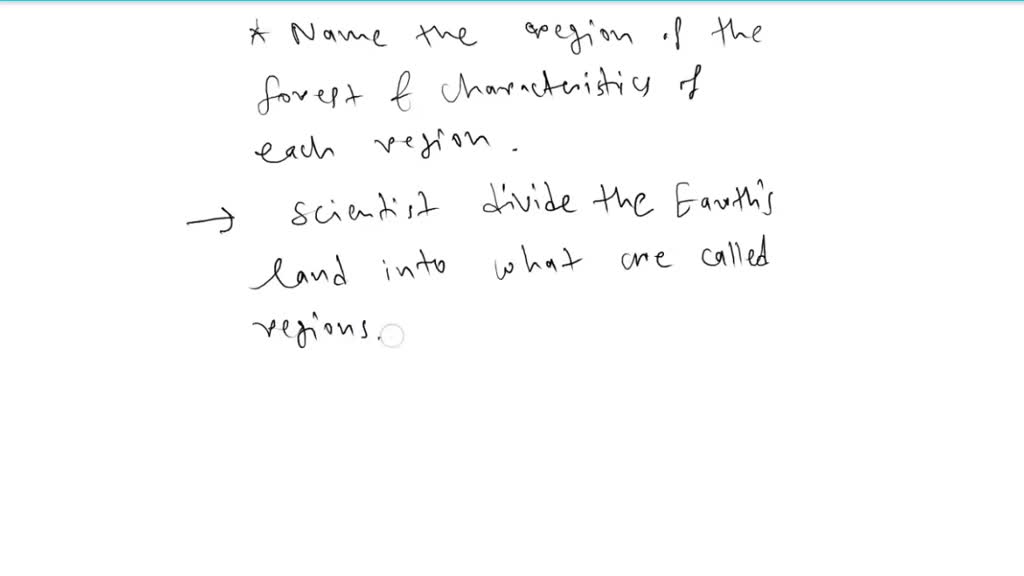 * Name the region of the
forest & characteristics of
each region.
→ scientist divide the Earth's
land into what are called
regions.